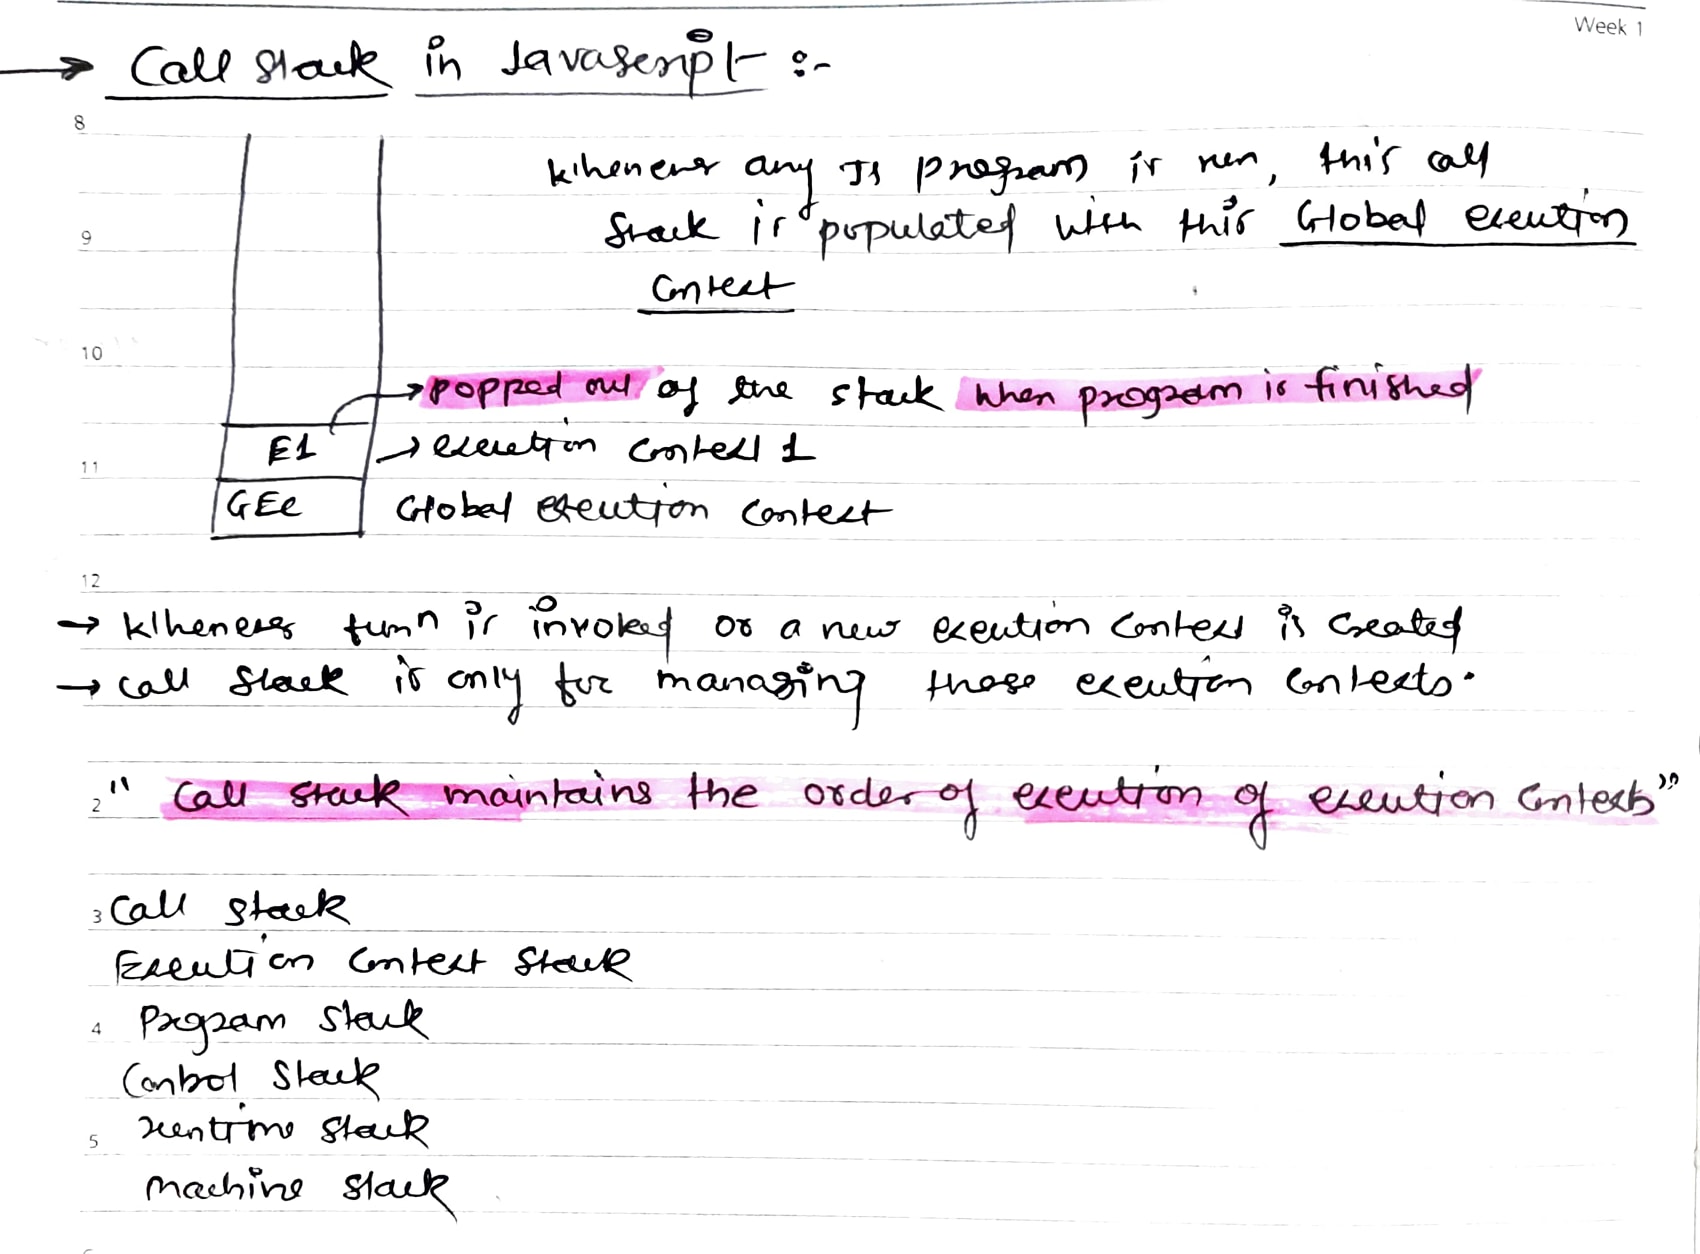 Week 1
→ Call Stack in Javascript :-
8
Whenever any JS program is run, this call
9 Stack is populated with this Global Execution
Context
10
→ popped out of the stack when program is finished
E1 → execution context 1
11
GEC Global Execution Context
12
→ Whenever funⁿ is invoked or a new execution context is created
→ Call Stack is only for managing these execution contexts.
2 " Call stack maintains the order of execution of execution contexts"
3 Call stack
Execution Context Stack
4 Program Stack
Control Stack
5 runtime stack
machine stack